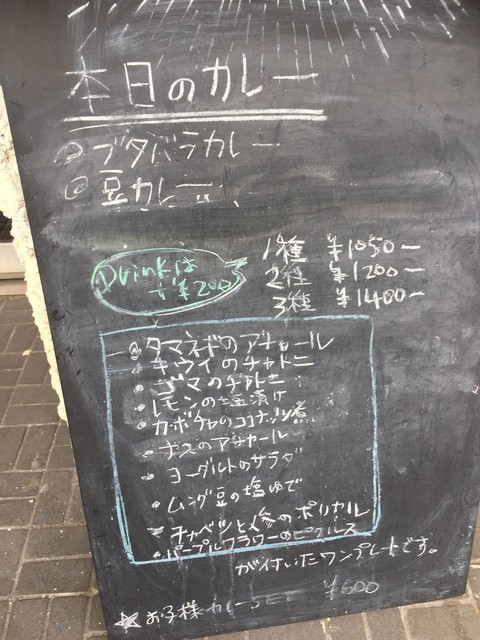 本日のカレー
ブタバラカレー
豆カレー
1種 ¥1050ー
2種 ¥1200ー
3種 ¥1400ー
Drinkは
+¥200
タマネギのアチャール
キウイのチャトニ
ゴマのチャトニ
レモンの塩漬け
カボチャのココナッツ煮
ナスのアチャール
ヨーグルトのサラダ
ムング豆の塩ゆで
キャベツと人参のポリヤル
パープルフラワーのピクルス
が付いたワンプレートです。
お子様カレーSET ¥600